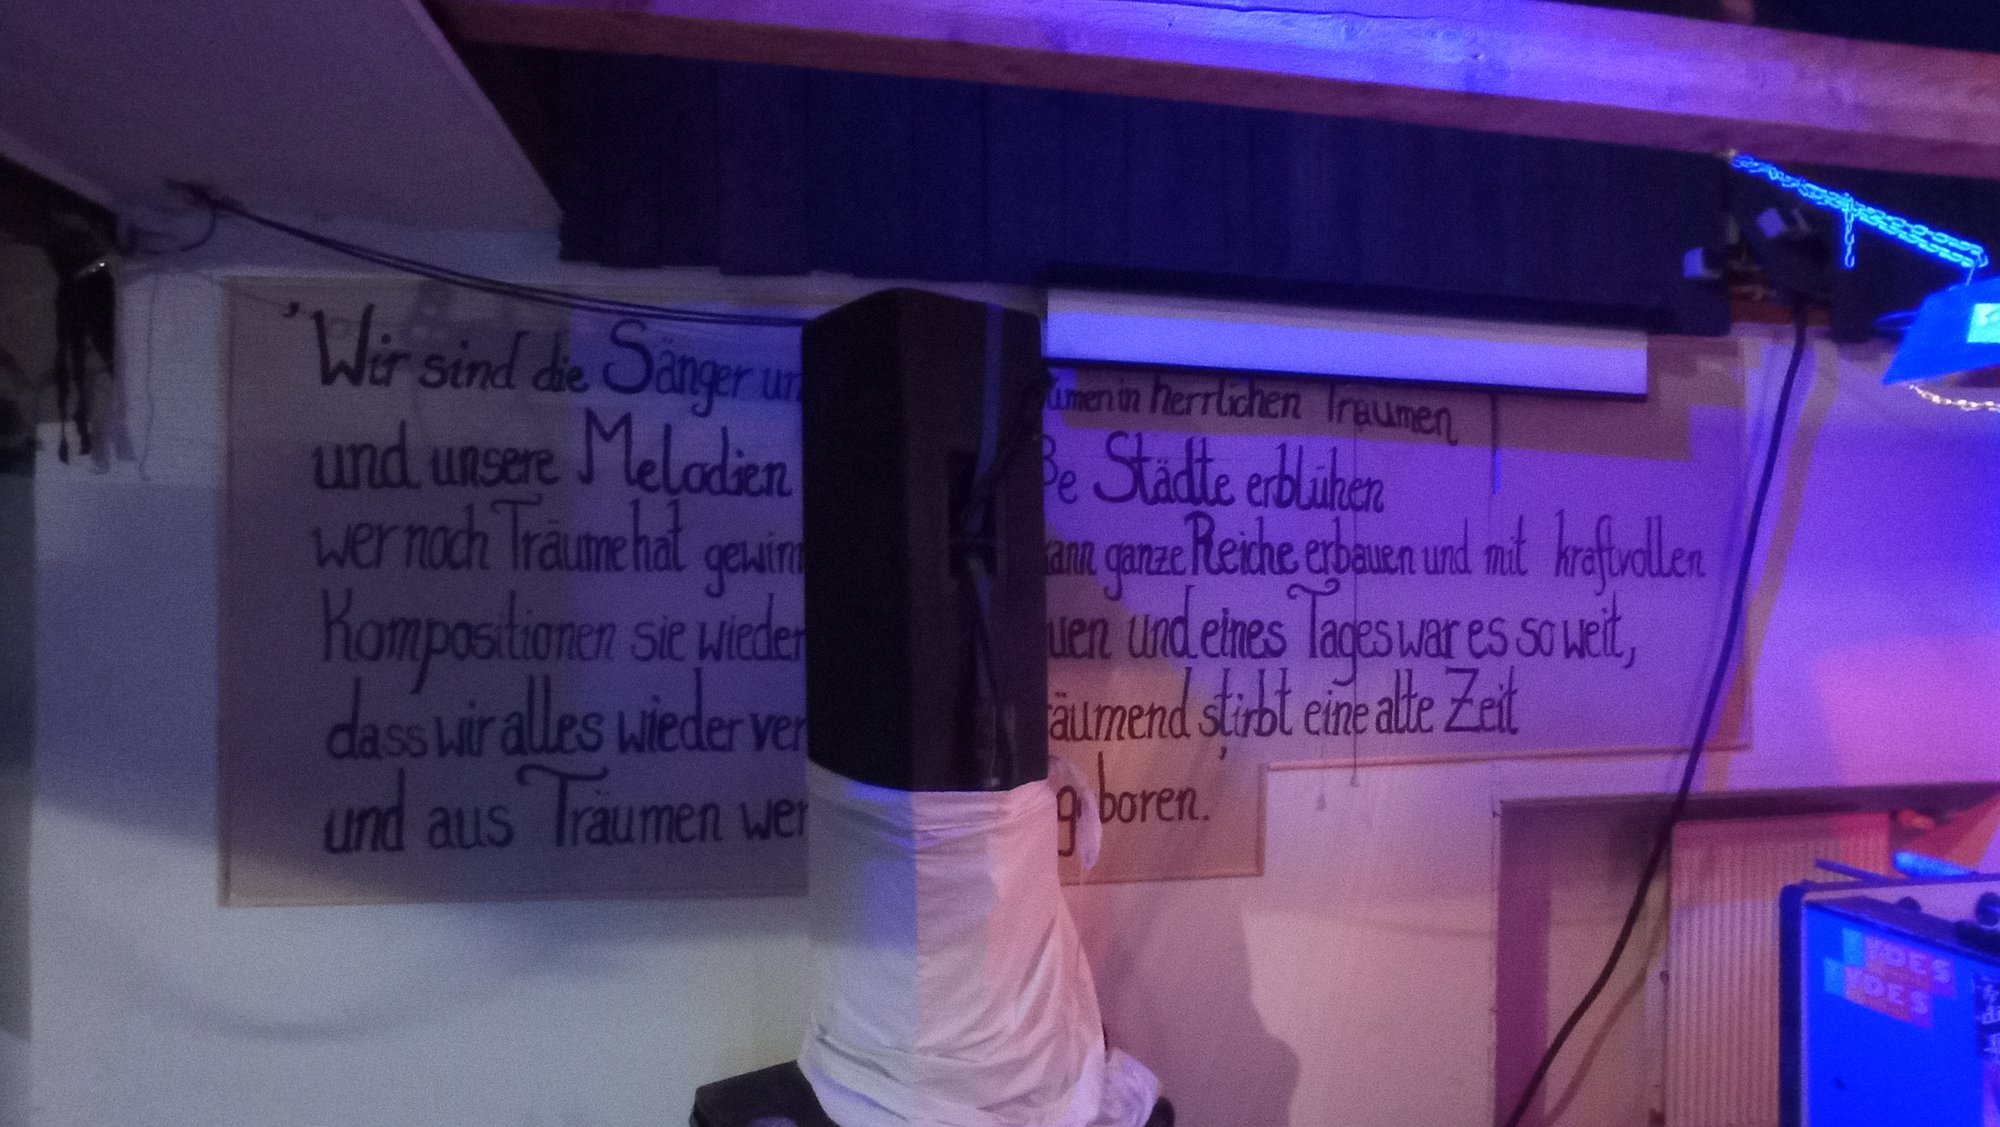 'Wir sind die Sänger in herrlichen Träumen
und unsere Melodien Städte erblühen
wer noch Träume hat ganze Reiche erbauen und mit kraftvollen
Kompositionen sie wieder und eines Tages war es so weit,
dass wir alles wieder stirbt eine alte Zeit
und aus Träumen boren.'